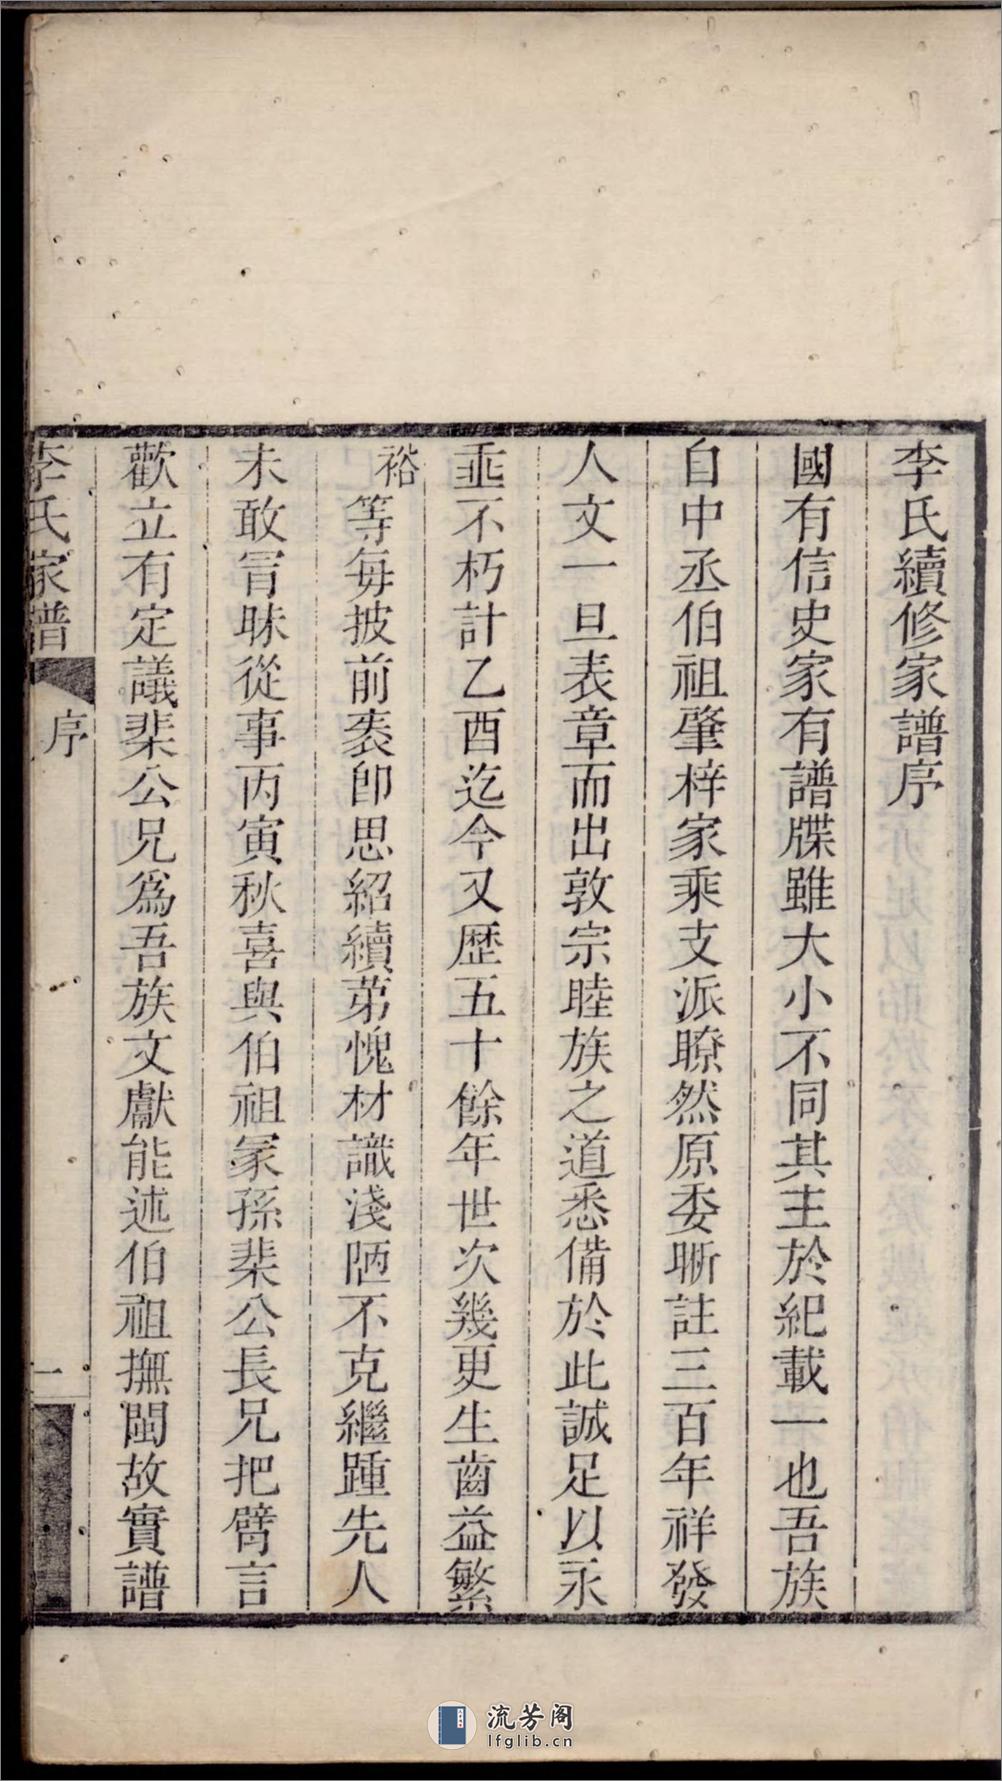 李氏續修家譜序
國有信史家有譜牒雖大小不同其主於紀載一也吾族
自中丞伯祖肇梓家乘支派瞭然原委晰註三百年祥發
人文一旦表章而出敦宗睦族之道悉備於此誠足以永
垂不朽計乙酉迄今又歷五十餘年世次幾更生齒益繁
裕等每披前袠即思紹續苐愧材識淺陋不克繼踵先人
未敢冒昧從事丙寅秋喜與伯祖冢孫棐公長兄把臂言
歡立有定議棐公兄爲吾族文獻能述伯祖撫閩故實譜
李氏家譜 序 一
流芳阁
lfglib.cn